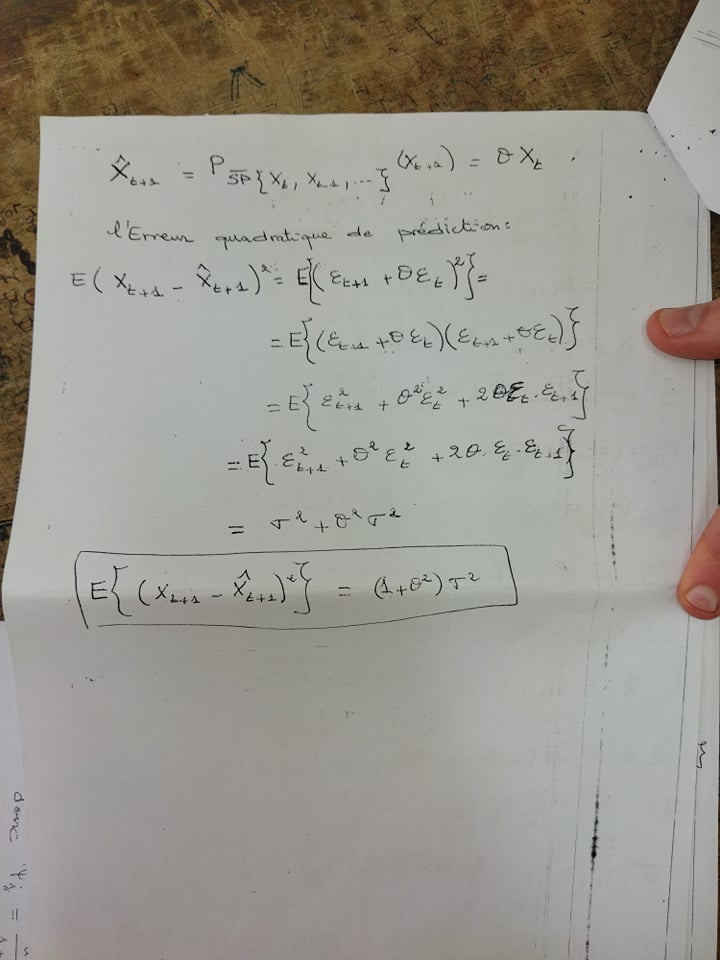 X̂ₜ₊₁ = P_S̅P̅{Xₜ, Xₜ₋₁, ...} (Xₜ₊₁) = θ Xₜ .
l'Erreur quadratique de prédiction:
E( Xₜ₊₁ - X̂ₜ₊₁ )² = E{( εₜ₊₁ + θεₜ )²} =
= E{(εₜ₊₁ + θ εₜ)(εₜ₊₁ + θεₜ)}
= E{ ε²ₜ₊₁ + θ²ε²ₜ + 2 θεₜ . εₜ₊₁}
= E{ ε²ₜ₊₁ + θ² ε²ₜ + 2θ. εₜ . εₜ₊₁}
= σ² + θ² σ²
E{ (Xₜ₊₁ - X̂ₜ₊₁)² } = (1+θ²) σ²
donc Ψⱼ =